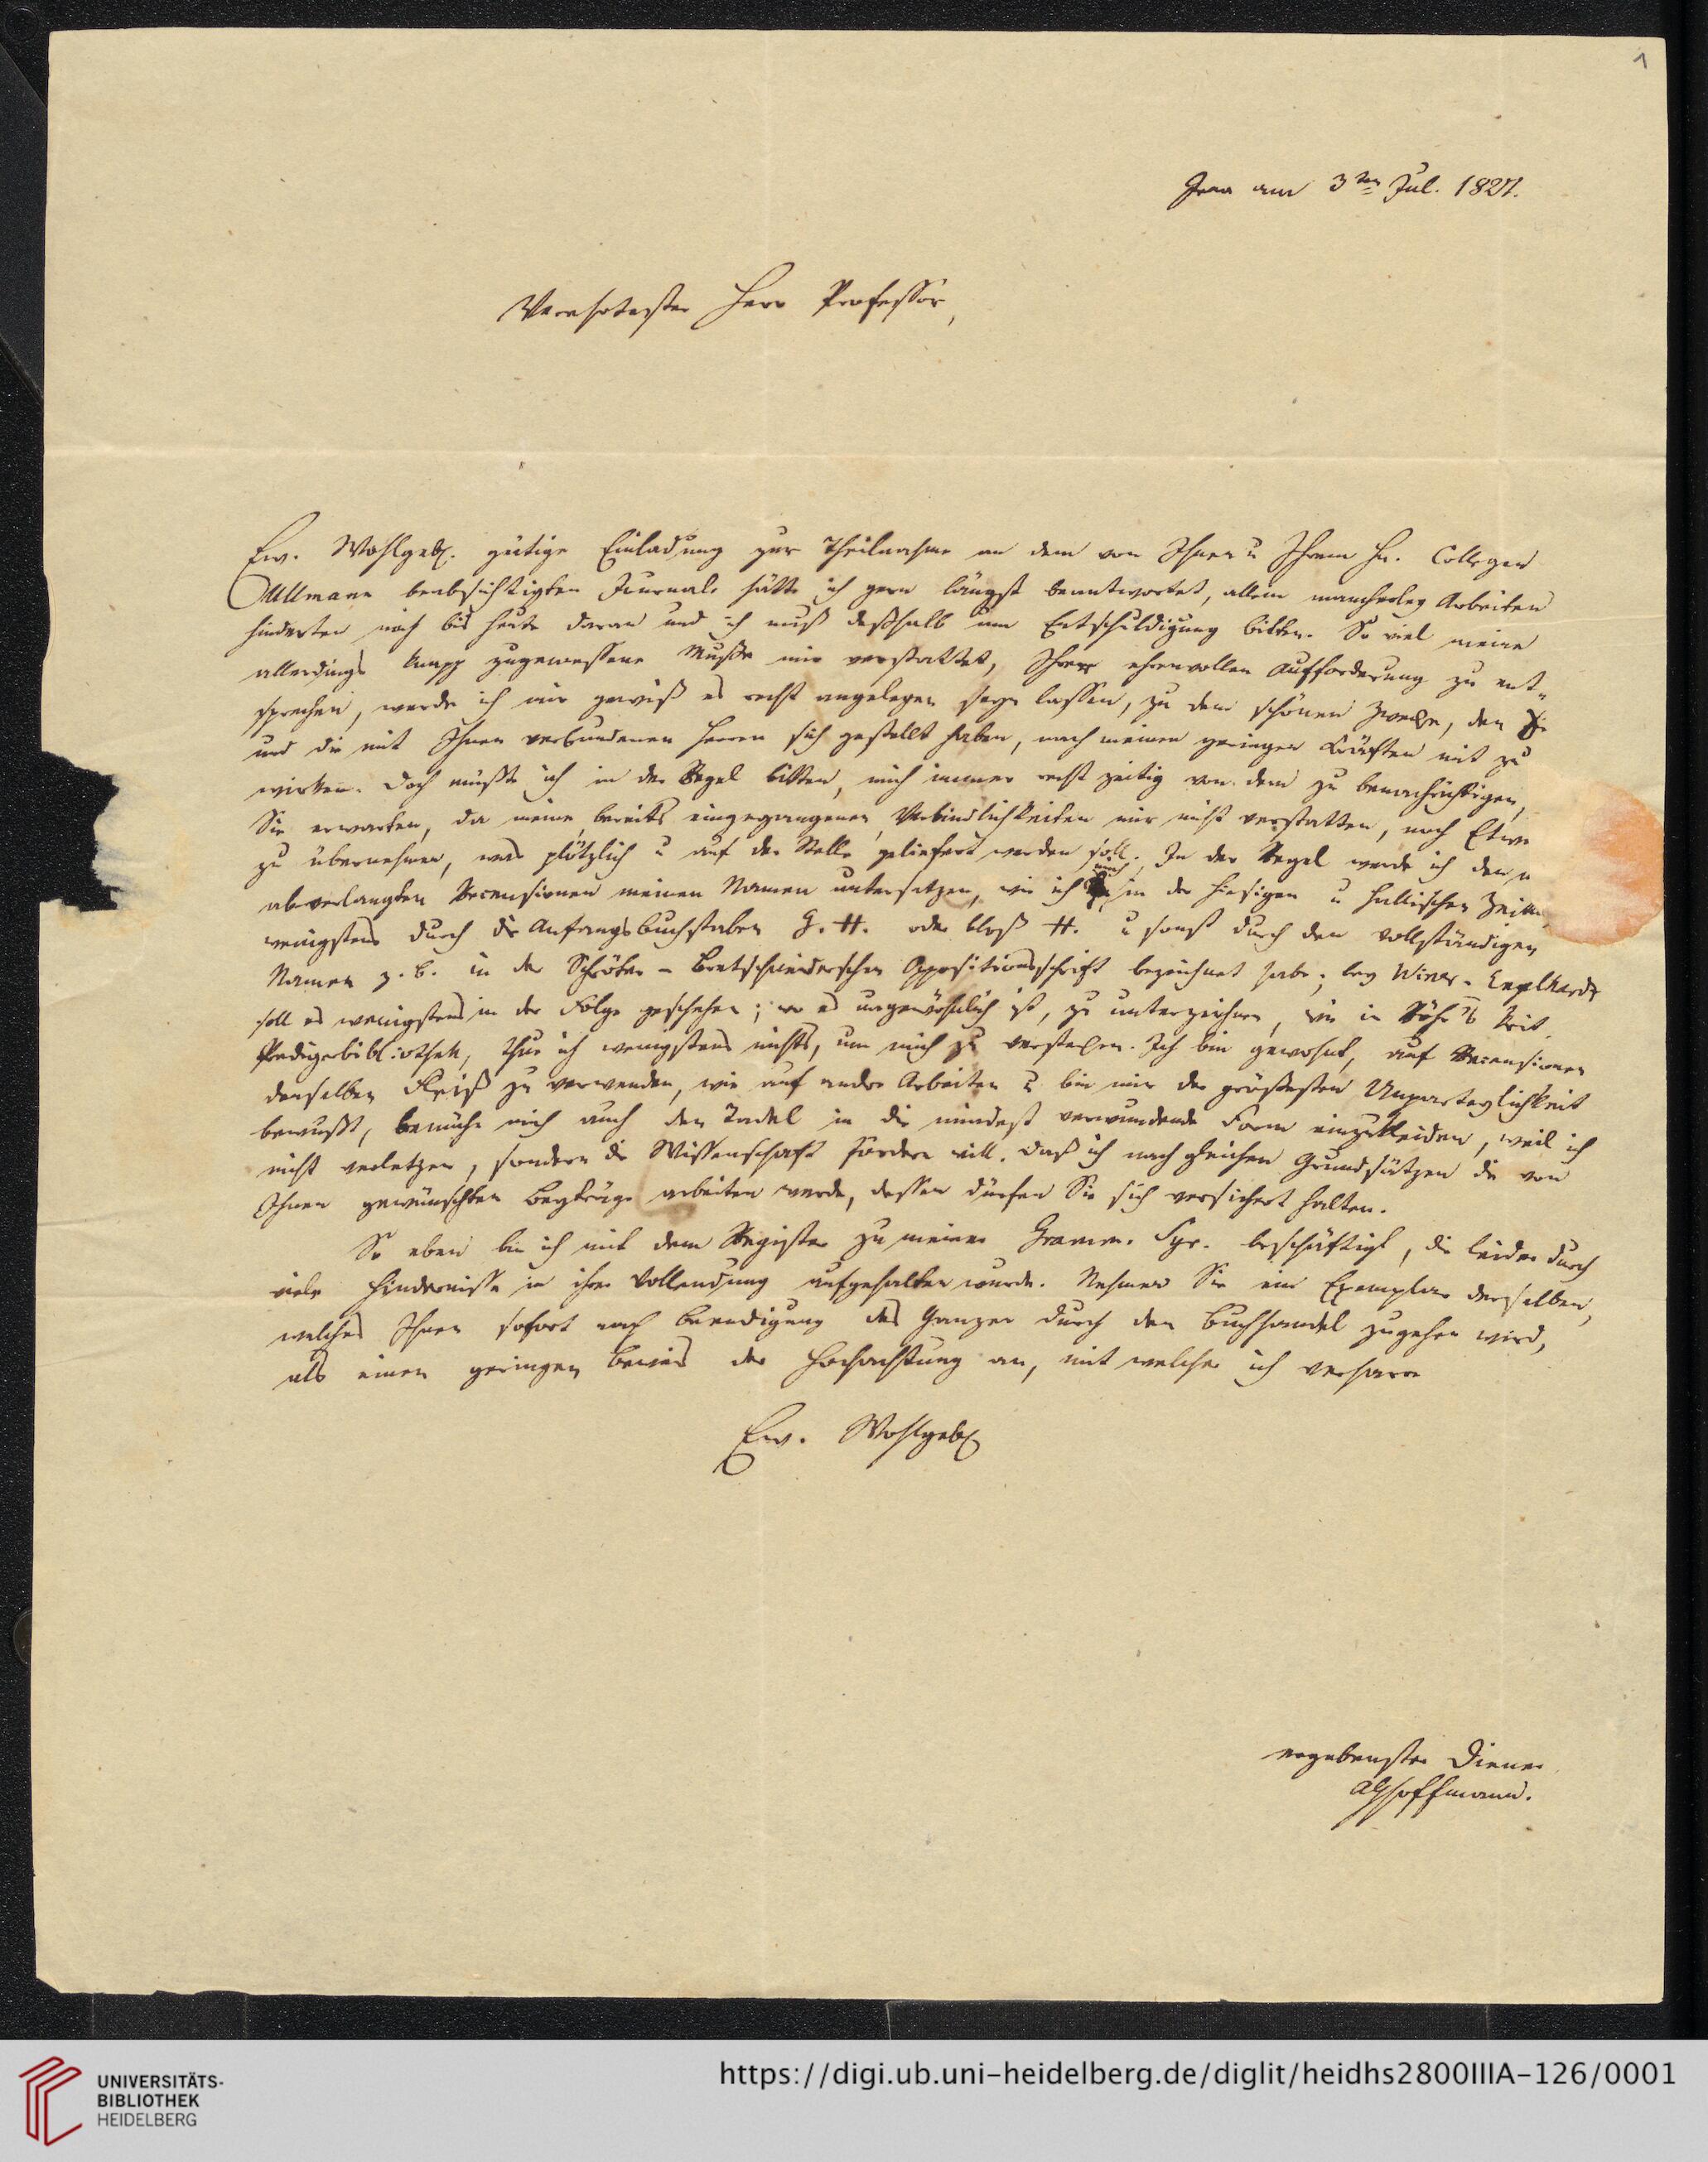 1
Jena am 3ten Jul. 1827.
Verehrtester Herr Professor,
Ew. Wohlgeb. gütige Einladung zur Theilnahme an dem von Ihnen u Ihrem Hn. Collegen
Ullmann beabsichtigten Journale hätte ich gern längst beantwortet, allein mancherley Arbeiten
hinderten mich bis heute daran und ich muß deßhalb um Entschuldigung bitten. So viel meine
allerdings knapp zugemessene Muße mir verstattet, Ihrer ehrenvollen Aufforderung zu ent-
sprechen, werde ich mir gewiß es recht angelegen seyn lassen, zu dem schönen Zwecke, den Sie
und die mit Ihnen verbundenen Herren sich gestellt haben, nach meinen geringen Kräften mit zu
wirken. Doch müßte ich in der Regel bitten, mich immer recht zeitig von dem zu benachrichtigen,
Sie erwarten, da meine bereits eingegangenen Verbindlichkeiten mir nicht verstatten, noch Etwas
zu übernehmen, was plötzlich u auf der Stelle geliefert werden soll. In der Regel werde ich den
abverlangten Recensionen meinen Namen untersetzen, wie ich mich in der hiesigen u hallischen Zeitung
wenigstens durch die Anfangsbuchstaben G. H. oder bloß H. u sonst durch den vollständigen
Namen z. B. in der Schröter-Bretschneiderschen Oppositionsschrift bezeichnet habe; bey Winer-Engelhardt
soll es wenigstens in der Folge geschehen; wo es ungewöhnlich ist, zu unterzeichnen, wie in Röhr's krit.
Predigerbibliothek, thue ich wenigstens nichts, um mich zu verstecken. Ich bin gewohnt, auf Recensionen
denselben Fleiß zu verwenden, wie auf andre Arbeiten u bin mir der größesten Unparteylichkeit
bewußt, bemühe mich auch den Tadel in die mindest verwundende Form einzukleiden, weil ich
nicht verletzen, sondern die Wissenschaft fördern will. Daß ich nach gleichen Grundsätzen die von
Ihnen gewünschten Beyträge arbeiten werde, dessen dürfen Sie sich versichert halten.
So eben bin ich mit dem Register zu meiner Gramm. Syr. beschäftigt, die leider durch
viele Hindernisse in ihrer Vollendung aufgehalten wurde. Nehmen Sie ein Exemplar derselben,
welches Ihnen sofort nach Beendigung des Ganzen durch den Buchhandel zugehen wird,
als einen geringen Beweis der Hochachtung an, mit welcher ich verharre
Ew. Wohlgeb
ergebenster Diener
AGHoffmann.
UNIVERSITÄTS-
BIBLIOTHEK
HEIDELBERG
https://digi.ub.uni-heidelberg.de/diglit/heidhs2800IIIA-126/0001